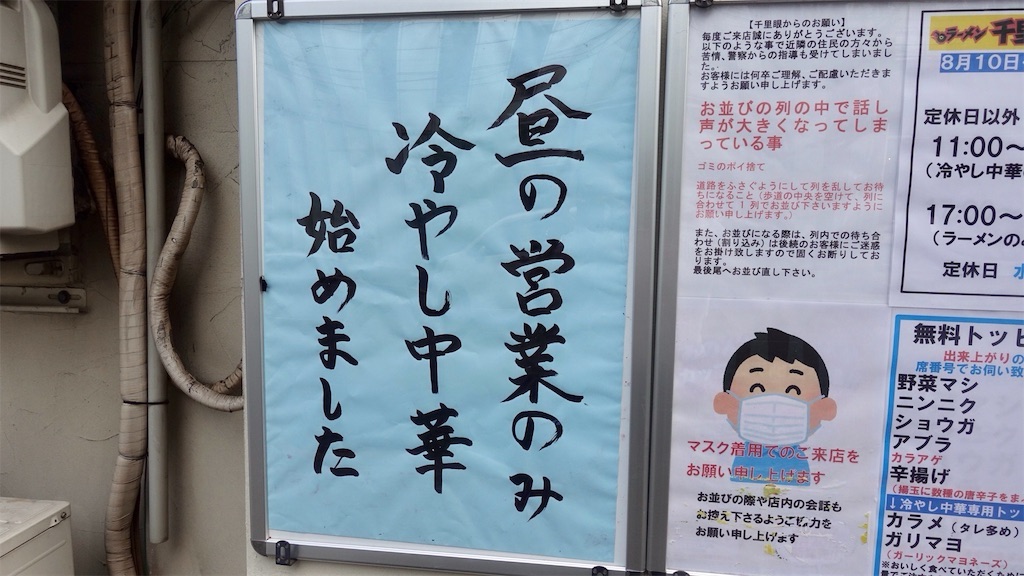 昼の営業のみ
冷やし中華
始めました
【千里眼からのお願い】
毎度ご来店誠にありがとうございます。
以下のような事で近隣の住民の方々から
苦情、警察からの指導も受けてしまいまし
た。
お客様には何卒ご理解、ご配慮いただきま
すようお願い申し上げます。
お並びの列の中で話し
声が大きくなってしま
っている事
ゴミのポイ捨て
道路をふさぐようにして列を乱してお待
ちになること(歩道の中央を空けて、列に
合わせて1列でお並び下さいますように
お願い申し上げます。)
また、お並びになる際は、列内での待ち合
わせ(割り込み)は後続のお客様にご迷惑
をお掛け致しますので固くお断りしてお
ります。
最後尾へお並び直し下さい。
マスク着用でのご来店を
お願い申し上げます
お並びの際や店内の会話も
お控え下さるようご協力を
お願い申し上げます
ラーメン 千里
8月10日
定休日以外
11:00〜
(冷やし中華
17:00〜
(ラーメンの
定休日 水
無料トッピ
出来上がりの
席番号でお伺い致
野菜マシ
ニンニク
ショウガ
アブラ
カラアゲ
辛揚げ
(揚玉に数種の唐辛子をま
↓冷やし中華専用トッ
カラメ(タレ多め)
ガリマヨ
(ガーリックマヨネーズ)
※おいしく食べていただくために